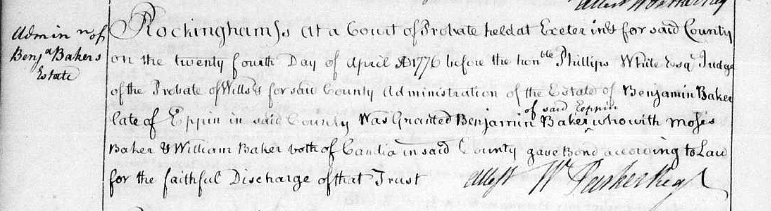 Rockingham Ss At a Court of Probate held at Exeter in & for said County
Admin n of
Benj a Bakers
Estate
on the twenty fourth Day of April AD 1776 before the hon ble Phillips White Esq r Judge
of the Probate of Wills &c for said County Administration of the Estate of Benjamin Baker
of said Eppin
late of Eppin in said County Was Granted Benjamin Baker ^ who with Moses
Baker & William Baker both of Candia in said County gave Bond according to Law
for the faithful Discharge of that Trust
Attest Wm Parker Reg r